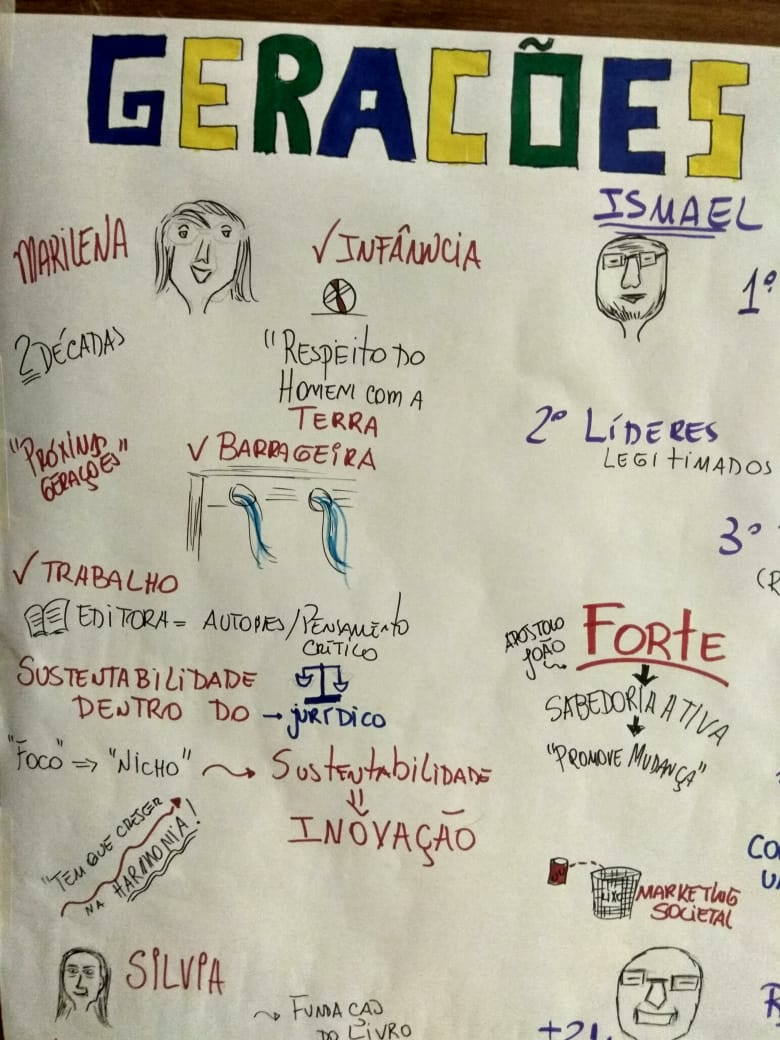 GERACÕES
MARILENA
2 DÉCADAS
"PRÓXIMAS
GERAÇÕES"
✓INFÂNCIA
"RESPEITO DO
HOMEM COM A
TERRA
✓BARRAGEIRA
✓TRABALHO
EDITORA = AUTORES/PENSAMENTO
CRÍTICO
SUSTENTABILIDADE
DENTRO DO → JURÍDICO
"FOCO" => "NICHO" → SUSTENTABILIDADE
INOVAÇÃO
"TEM QUE CRESCER
NA HARMONIA!
SILVIA
→ FUNDACAO
DO LIVRO
ISMAEL
1º
2º LÍDERES
LEGITIMADOS
3º
(R
APOSTOLO
JOÃO
FORTE
SABEDORIA ATIVA
"PROMOVE MUDANÇA"
LIXO
MARKETING
SOCIETAL
CO
U